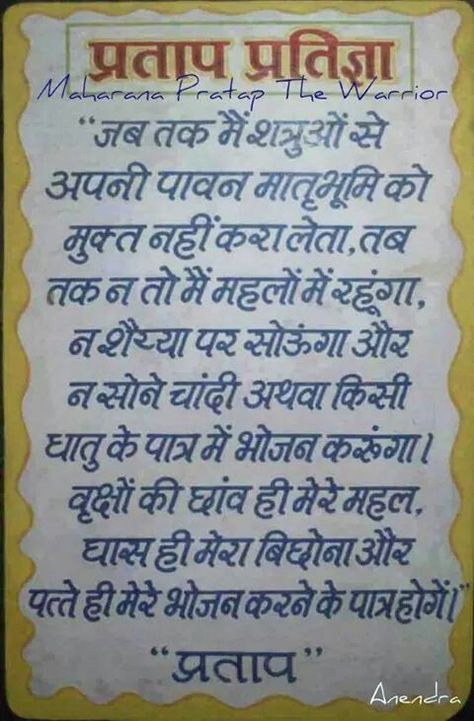 प्रताप प्रतिज्ञा
Maharana Pratap The Warrior
“जब तक मैं शत्रुओं से
अपनी पावन मातृभूमि को
मुक्त नहीं करा लेता, तब
तक न तो मैं महलों में रहूंगा,
न शैय्या पर सोऊंगा और
न सोने चांदी अथवा किसी
धातु के पात्र में भोजन करूंगा।
वृक्षों की छांव ही मेरे महल,
घास ही मेरा बिछोना और
पत्ते ही मेरे भोजन करने के पात्र होगें।”
“प्रताप”
Anendra